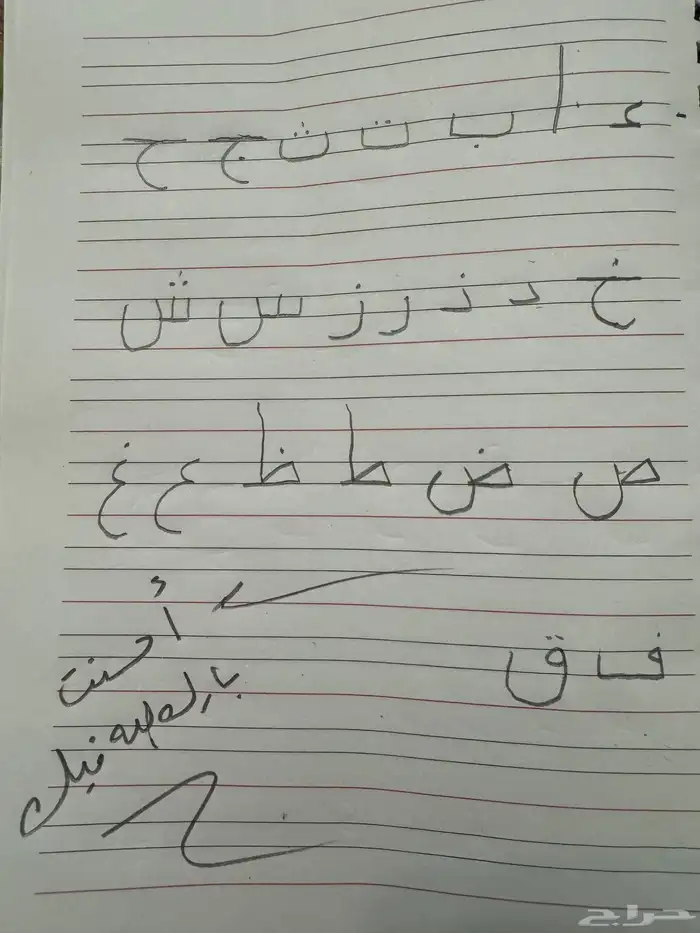 ء ا ب ت ث ج ح
خ د ذ ر ز س ش
ص ض ط ظ ع غ
ف ق
أحسنت
بارك الله فيك
حراج